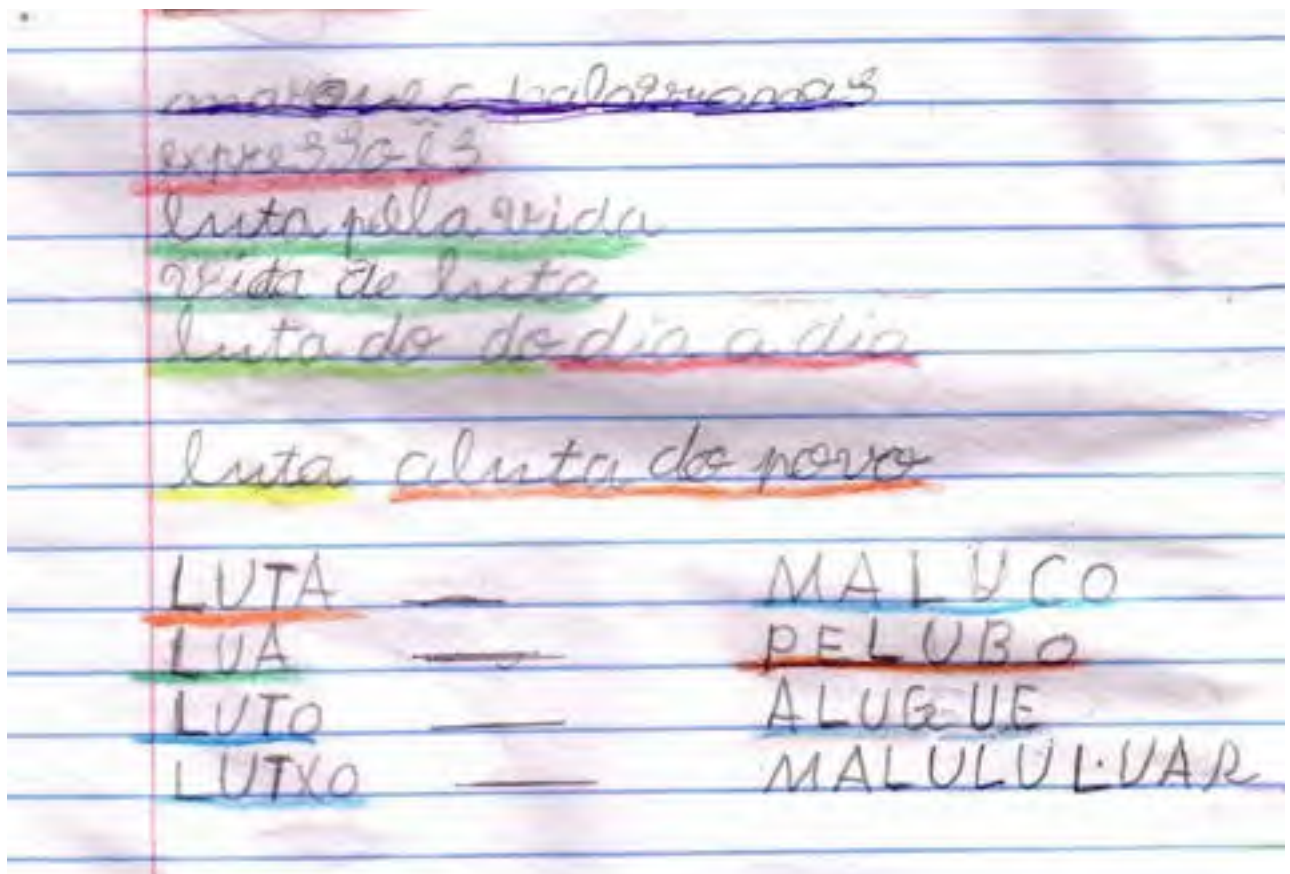 expressoẽs
luta pela vida
vida de luta
luta do do dia a dia
luta aluta do povo
LUTA — MALUCO
LUA — PELUBO
LUTO — ALUGUE
LUTXO — MALULULUAR